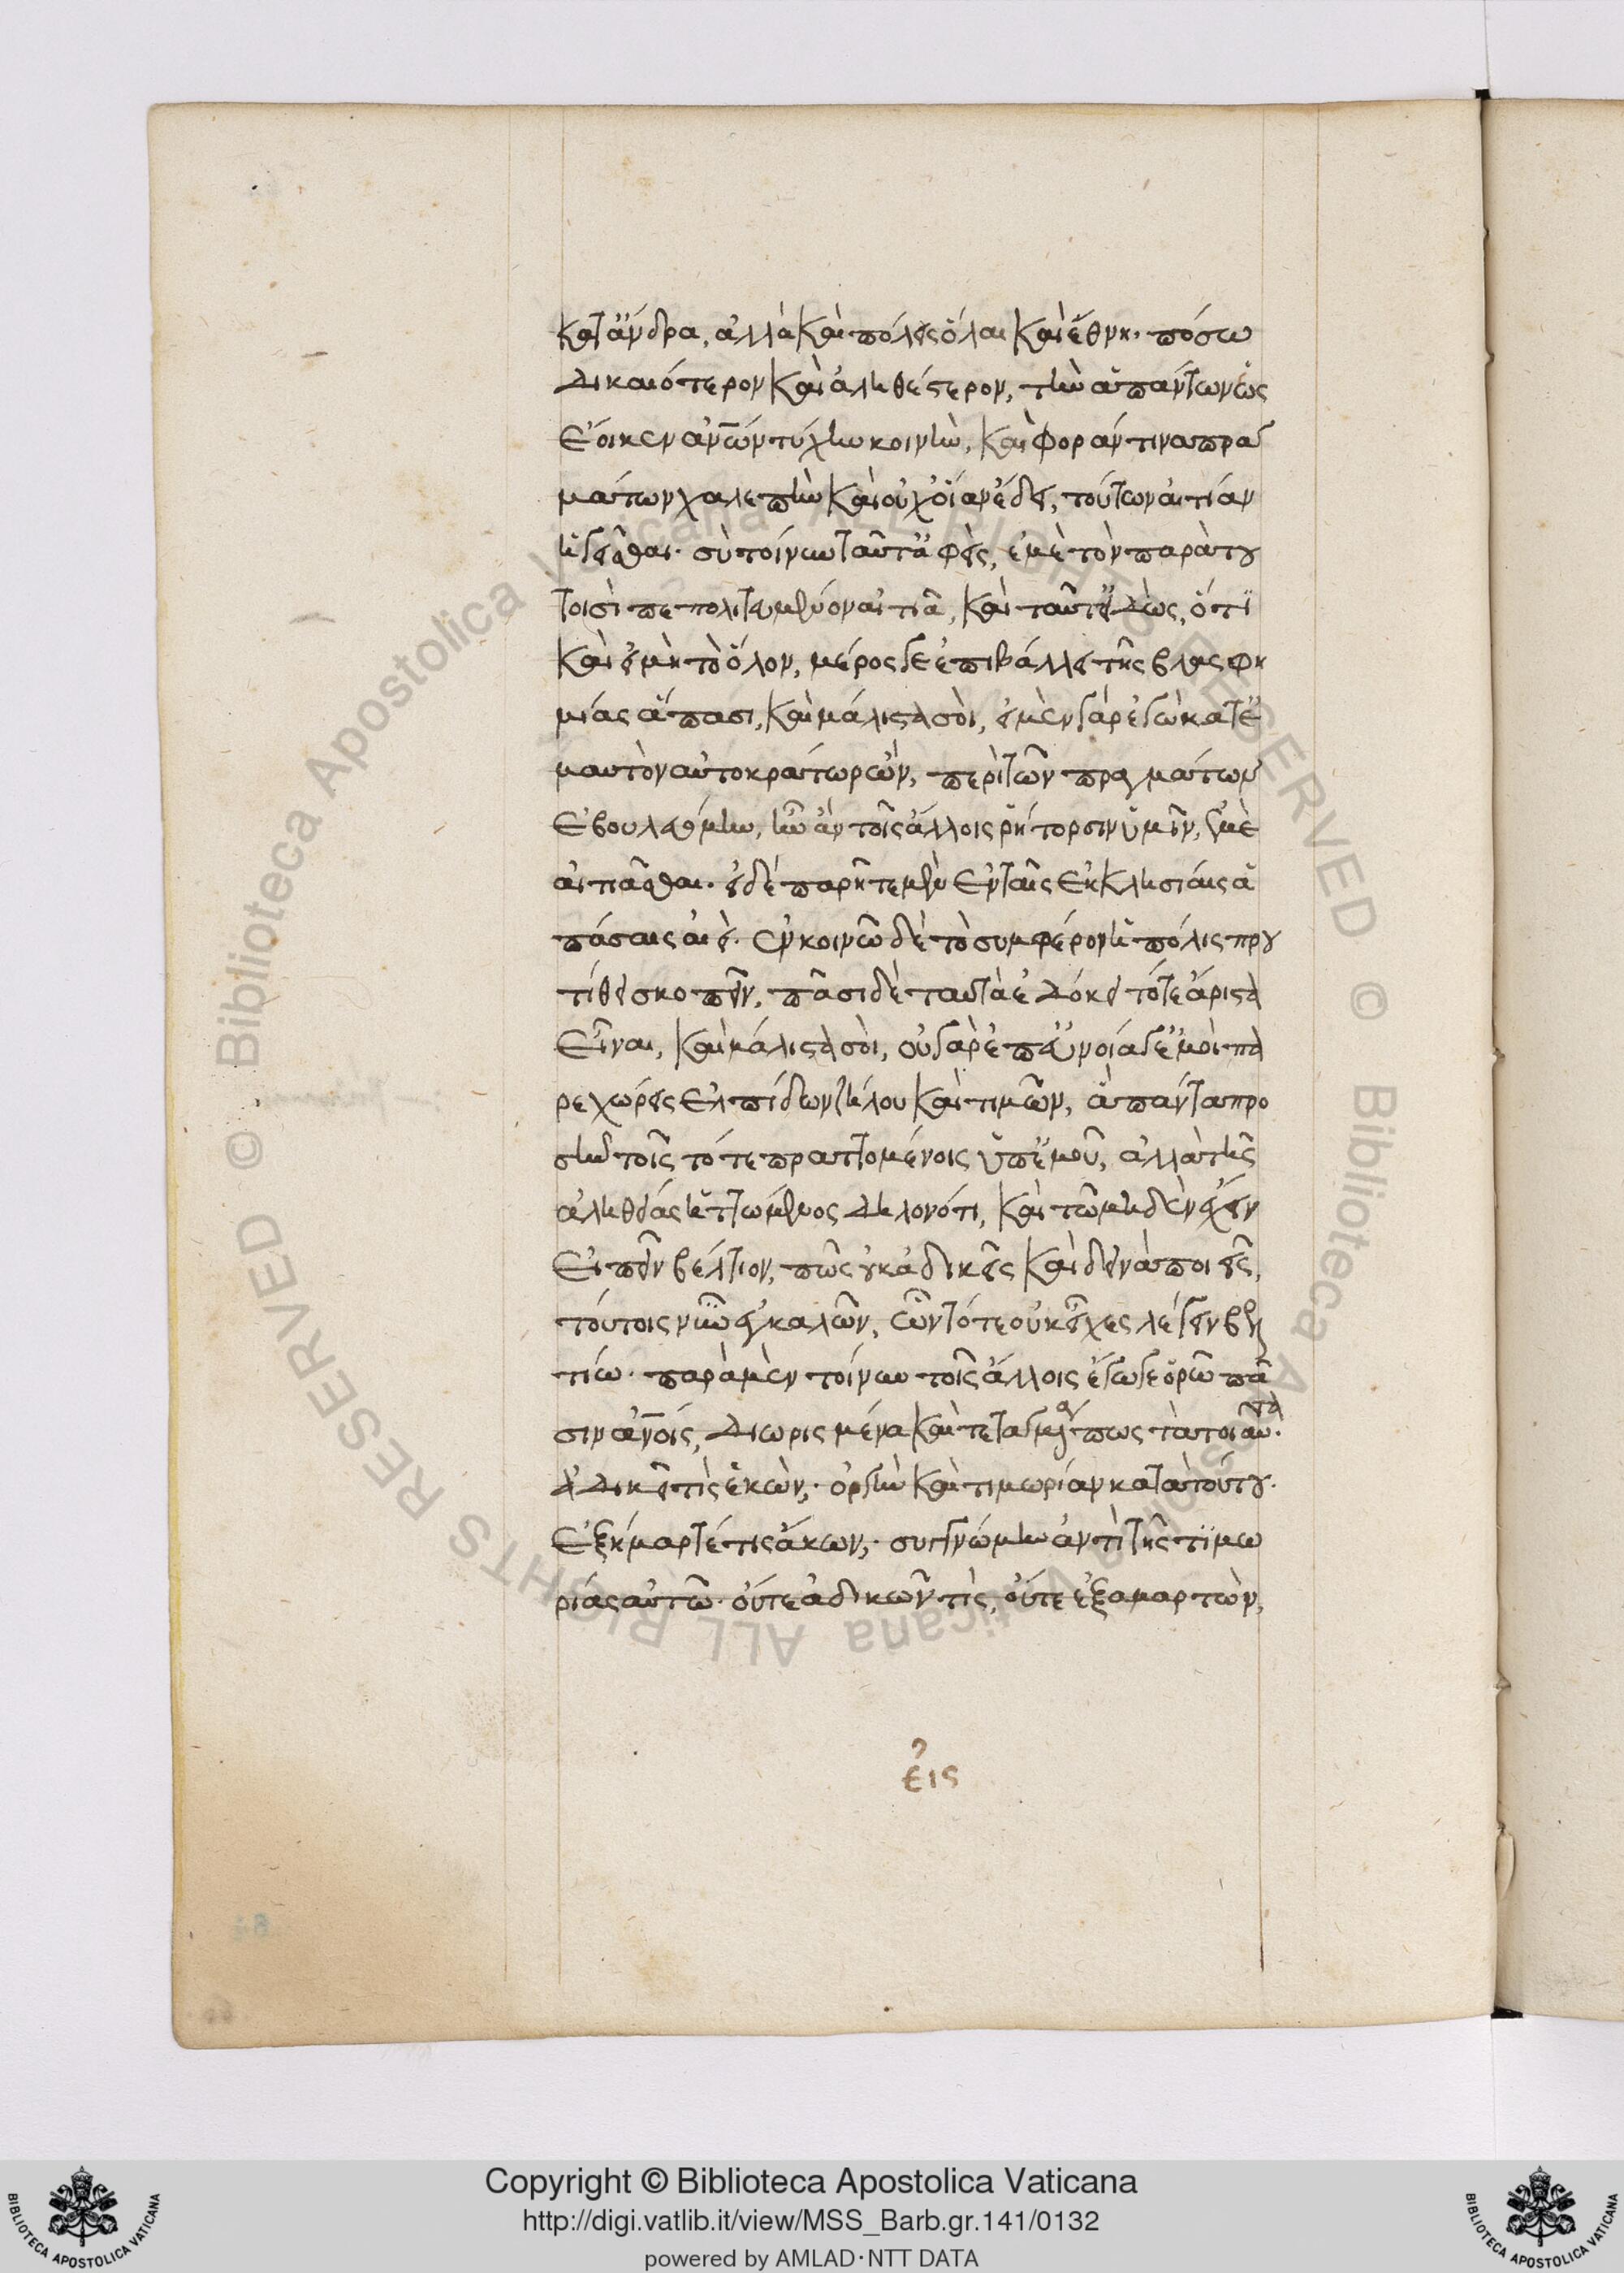 κατ' ἄνδρα, ἀλλὰ καὶ πόλεις ὅλαι καὶ ἔθνη· πόσω
δικαιότερον καὶ ἀληθέστερον, τὴν ἁπάντων ὡς
ἔοικεν ἀν̅ων τύχην κοινὴν, καὶ φοράν τινα πραγ
μάτων χαλεπὴν καὶ οὐχ' οἵαν ἔδει, τούτων αἰτίαν
ἡγεῖσθαι· σὺ τοίνυν ταῦτ' ἀφεὶς, ἐμὲ τὸν παρὰ του
τοισὶ πεπολιτευμένον αἰτιᾶ, καὶ ταῦτ' εἰδὼς, ὅτι
καὶ εἰ μὴ τὸ ὅλον, μέρος γε ἐπιβάλλει τῆς βλασφη
μίας ἅπασι, καὶ μάλιστα σοὶ, εἰ μὲν γὰρ ἐγὼ κατ' ἐ
μαυτὸν αὐτοκράτωρ ὢν, περὶ τῶν πραγμάτων
ἐβουλευόμην, ἦν ἂν τοῖς ἄλλοις ῥήτορσιν ὑμῖν, ἐμὲ
αἰτιᾶσθαι· εἰ δὲ παρῆτε μὲν ἐν ταῖς ἐκκλησίαις ἁ
πάσαις ἀεὶ· ἐν κοινῶ δὲ τὸ συμφέρον ἡ πόλις πρου
τίθει σκοπεῖν, πᾶσι δὲ ταῦτα ἐδόκει τότε ἄριστα
εἶναι, καὶ μάλιστα σοὶ, οὐ γὰρ ἐπ' εὐνοία γ' ἐμοὶ πα
ρεχώρεις ἐλπίδων ζήλου καὶ τιμῶν, ἃ πάντα προ
σῆν τοῖς τότε πραττομένοις ὑπ' ἐμοῦ, ἀλλὰ τῆς
ἀληθείας ἡττώμενος δηλονότι, καὶ τῶ μηδὲν ἔχειν
εἰπεῖν βέλτιον, πῶς οὐκ ἀδικεῖς καὶ δεινὰ ποιεῖς,
τούτοις νῦν ἐγκαλῶν, ὧν τότε οὐκ εἶχες λέγειν βελ
τίω· παρὰ μὲν τοίνυν τοῖς ἄλλοις ἔγωγε ὁρῶ πᾶ
σιν ἀν̅οις, διωρισμένα καὶ τεταγμένα πως τὰ τοιαῦτα·
ἀδικεῖ τὶς ἑκὼν; ὀργὴν καὶ τιμωρίαν κατὰ τούτου·
ἐξήμαρτέ τις ἄκων; συγγνώμην ἀντὶ τῆς τιμω
ρίας αὐτῶ· οὔτε ἀδικῶν τὶς, οὔτε ἐξαμαρτὼν,
εἰς
Copyright © Biblioteca Apostolica Vaticana
http://digi.vatlib.it/view/MSS_Barb.gr.141/0132
powered by AMLAD·NTT DATA